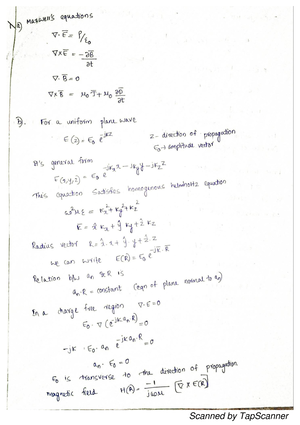 1 a) Maxwell's equations
∇·E̅ = ρ/ε₀
∇×E̅ = -∂B̅/∂t
∇·B̅ = 0
∇×B̅ = μ₀ J̅ + μ₀ ∂D̅/∂t
b). For a uniform plane wave
E(z) = E₀ e^jkz   z - direction of propagation
E₀ → amplitude vector
It's general form
E(x,y,z) = E₀ e^-jkₓx - jk_y y - jk_z z
This equation satisfies homogenous helmholtz equation
ω²με = Kₓ² + K_y² + K_z²
K̅ = x̂ Kₓ + ŷ K_y + ẑ K_z
Radius vector R = x̂·x + ŷ y + ẑ z
we can write E(R) = E₀ e^-jK̅·R̅
Relation b/w aₙ & R is
aₙ·R = constant (eqn of plane normal to aₙ)
In a charge free region ∇·E = 0
E₀·∇(e^-jk aₙ·R) = 0
-jk · E₀·aₙ e^-jk aₙ R = 0
aₙ·E₀ = 0
E₀ is transverse to the direction of propagation
magnetic field H(R) = -1/jωμ [∇×E(R)]
Scanned by TapScanner